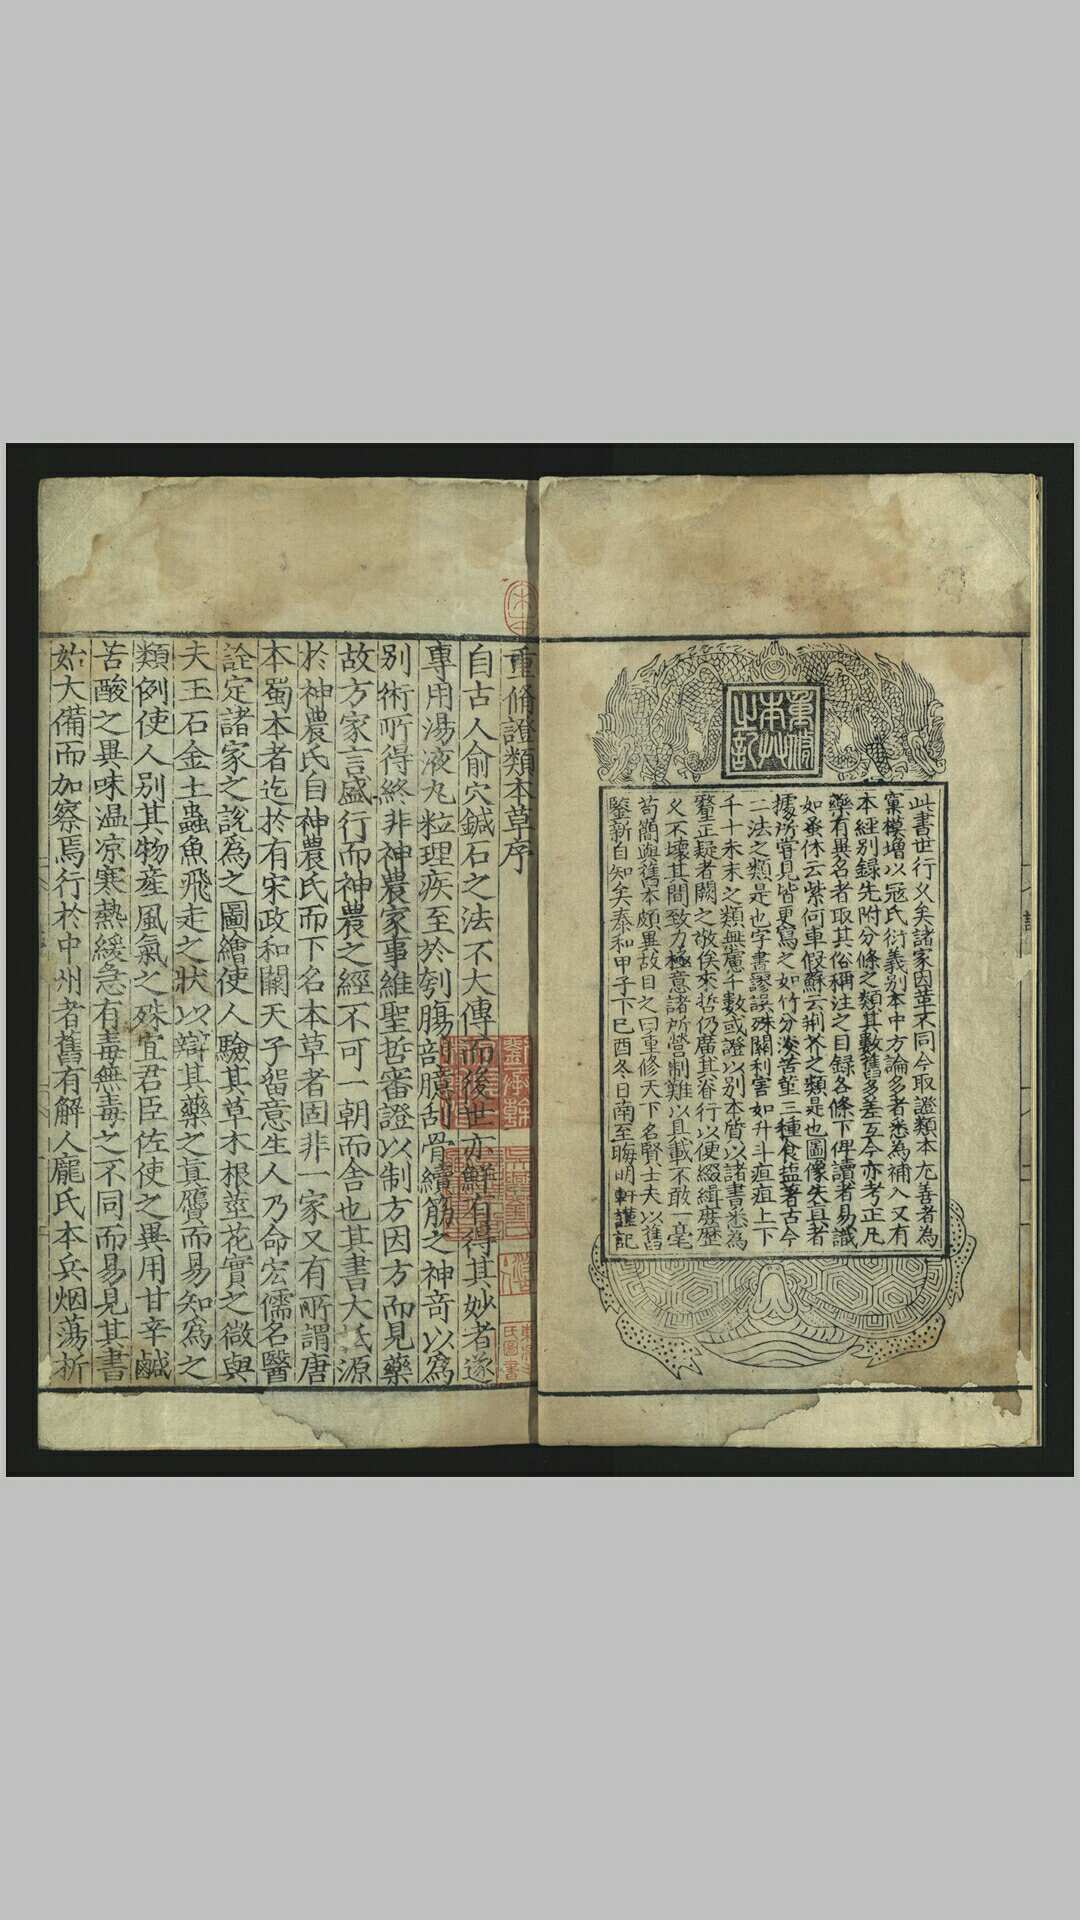 重脩本艸之記
此書世行久矣諸家因革不同今取證類本尤善者為
窠模増以寇氏衍義別本中方論多者悉為補入又有
本經別錄先附分條之類其數舊多差互今亦考正凡
藥有異名者取其俗稱注之目録各條下俾讀者易識
如蚤休云紫何車假蘇云荆芥之類是也圖像失真者
據所嘗見皆更寫之如竹分淡苦菫三種食盐著古今
二法之類是也字書謬誤殊關利害如升斗疽疸上下
千十未末之類無慮千數或證以別本質以諸書悉為
釐正疑者闕之敬俟來哲仍廣其脊行以便綴緝庶歷
久不壊其間致力極意諸所營制難以具載不敢一毫
苟簡與舊本頗異故目之曰重修天下名賢士夫以舊
鑒新自知矣泰和甲子下己酉冬日南至晦明軒謹記
重脩證類本草序
自古人俞穴鍼石之法不大傳而後世亦鮮有得其妙者遂
專用湯液丸粒理疾至於刳腸剖臆刮骨續筋之神竒以為
別術所得終非神農家事維聖哲審證以制方因方而見藥
故方家言盛行而神農之經不可一朝而舎也其書大氐源
於神農氏自神農氏而下名本草者固非一家又有所謂唐
本蜀本者迄於有宋政和闕天子留意生人乃命宏儒名醫
詮定諸家之說為之圖繪使人驗其草木根莖花實之微與
夫玉石金土蟲魚飛走之狀以辯其藥之真贋而易知為之
類例使人別其物産風氣之殊宜君臣佐使之異用甘辛鹹
苦酸之異味温凉寒熱緩急有毒無毒之不同而易見其書
始大備而加察焉行於中州者舊有解人龐氏本兵烟蕩析